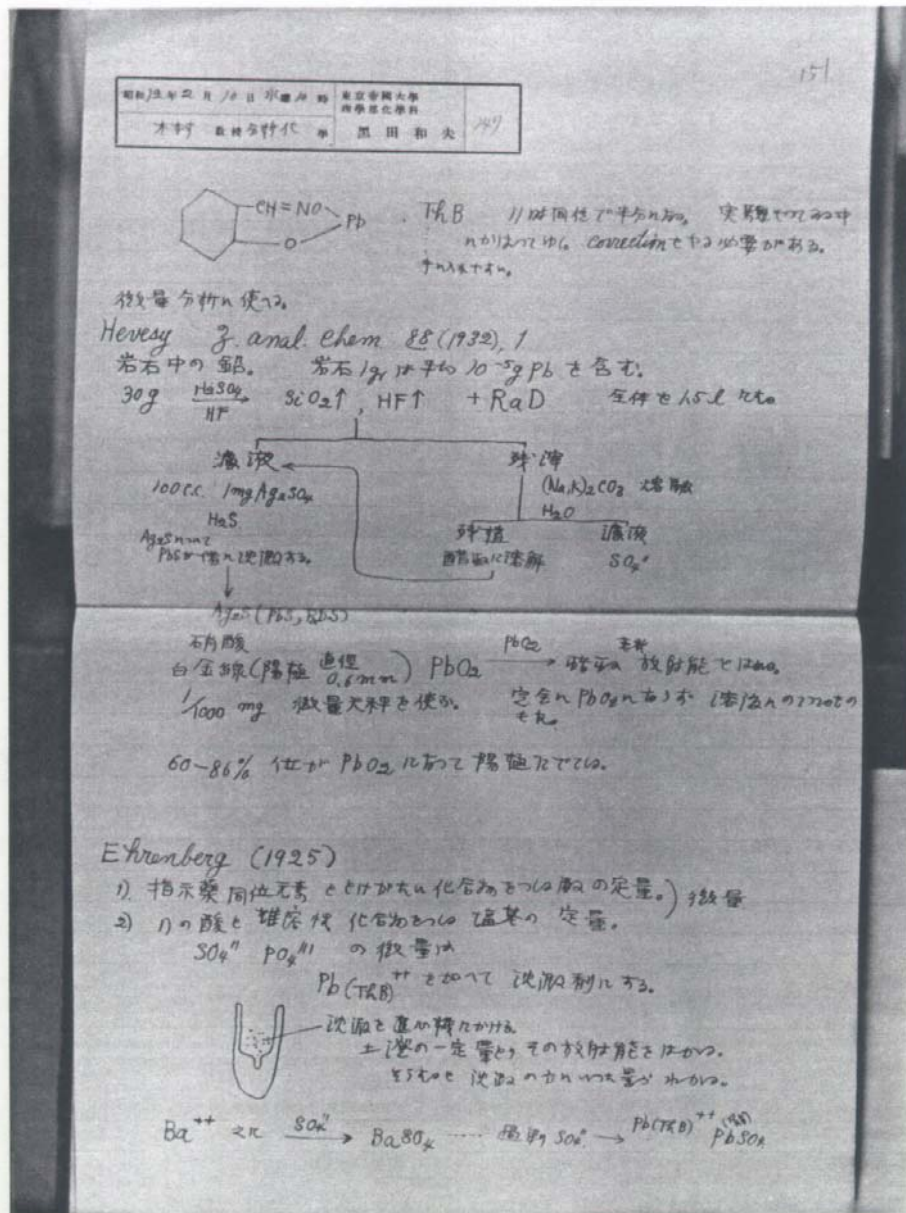 151
昭和12年2月10日 水曜 時 東京帝國大學 理學部化學科
木村 教授 分析化學 黒田和夫 149
CH=NO Pb O
ThB 11時間位で半分になる。実験をやってゐる中
にかはってゆく。correctionをやる必要がある。
手に入れやすい。
微量分析に使へる。
Hevesy Z. anal. Chem 88 (1932), 1
岩石中の鉛。 岩石1gは平均10⁻⁵g Pbを含む。
30g H₂SO₄ HF → SiO₂↑, HF↑ + RaD 全体を1.5lにする。
濾液 残渣
100cc. 1mg Ag₂SO₄ (Na,K)₂CO₃ 熔融
H₂S H₂O
残渣 濾液
Ag₂S
PbSが 沈澱する。 醋酸に溶解 SO₄″
Ag₂S (PbS, RDS)
硝酸
白金線(陽極 直径 0.6mm) PbO₂ PbO₂ → 放射能をはかる。
1/1000 mg 微量天秤を使ふ。 完全にPbO₂にならず
60–86% 位がPbO₂になって陽極にでてくる。
Ehrenberg (1925)
1) 指示藥同位元素ととけがたい化合物をつくる酸の定量。 微量
2) 11の酸と難溶性化合物をつくる塩基の定量。
SO₄″ PO₄‴ の微量は
Pb(ThB)⁺⁺を加へて沈澱剤にする。
沈澱を遠心機にかける。
上澄の一定量とり、その放射能をはかる。
さうすると沈澱の方にいった量がわかる。
Ba⁺⁺ 之に SO₄″ → BaSO₄ ······ 過剰 SO₄″ → Pb(ThB)⁺⁺ PbSO₄ (ThB)